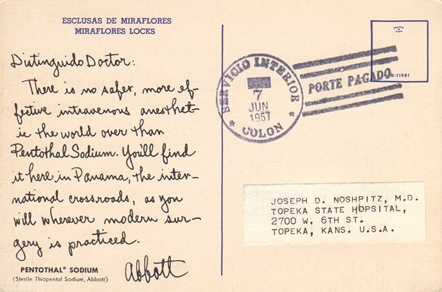 ESCLUSAS DE MIRAFLORES
MIRAFLORES LOCKS
Distinguido Doctor:
There is no safer, more ef-
fective intravenous anesthet-
ic the world over than
Pentothal Sodium. You'll find
it here in Panama, the inter-
national crossroads, as you
will wherever modern sur-
gery is practiced.
Abbott
PENTOTHAL® SODIUM
(Sterile Thiopental Sodium, Abbott)
SERVICIO INTERIOR
7
JUN
1957
COLON
PORTE PAGADO
JOSEPH D. NOSHPITZ, M.D.
TOPEKA STATE HOPSITAL,
2700 W. 6TH ST.
TOPEKA, KANS. U.S.A.